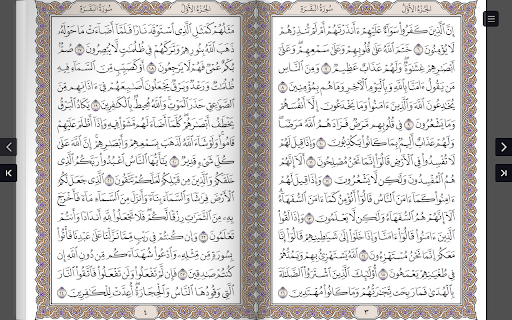 الجُزْءُ الأَوَّلُ
سُورَةُ البَقَرَةِ
إِنَّ ٱلَّذِينَ كَفَرُواْ سَوَآءٌ عَلَيْهِمْ ءَأَنذَرْتَهُمْ أَمْ لَمْ تُنذِرْهُمْ
لَا يُؤْمِنُونَ ٦ خَتَمَ ٱللَّهُ عَلَىٰ قُلُوبِهِمْ وَعَلَىٰ سَمْعِهِمْ وَعَلَىٰٓ
أَبْصَٰرِهِمْ غِشَٰوَةٌ وَلَهُمْ عَذَابٌ عَظِيمٌ ٧ وَمِنَ ٱلنَّاسِ
مَن يَقُولُ ءَامَنَّا بِٱللَّهِ وَبِٱلْيَوْمِ ٱلْأٓخِرِ وَمَا هُم بِمُؤْمِنِينَ ٨
يُخَٰدِعُونَ ٱللَّهَ وَٱلَّذِينَ ءَامَنُواْ وَمَا يَخْدَعُونَ إِلَّآ أَنفُسَهُمْ
وَمَا يَشْعُرُونَ ٩ فِي قُلُوبِهِم مَّرَضٌ فَزَادَهُمُ ٱللَّهُ مَرَضًا
وَلَهُمْ عَذَابٌ أَلِيمٌۢ بِمَا كَانُواْ يَكْذِبُونَ ١٠ وَإِذَا قِيلَ لَهُمْ
لَا تُفْسِدُواْ فِي ٱلْأَرْضِ قَالُوٓاْ إِنَّمَا نَحْنُ مُصْلِحُونَ ١١ أَلَآ إِنَّهُمْ
هُمُ ٱلْمُفْسِدُونَ وَلَٰكِن لَّا يَشْعُرُونَ ١٢ وَإِذَا قِيلَ لَهُمْ
ءَامِنُواْ كَمَآ ءَامَنَ ٱلنَّاسُ قَالُوٓاْ أَنُؤْمِنُ كَمَآ ءَامَنَ ٱلسُّفَهَآءُ
أَلَآ إِنَّهُمْ هُمُ ٱلسُّفَهَآءُ وَلَٰكِن لَّا يَعْلَمُونَ ١٣ وَإِذَا لَقُواْ
ٱلَّذِينَ ءَامَنُواْ قَالُوٓاْ ءَامَنَّا وَإِذَا خَلَوْاْ إِلَىٰ شَيَٰطِينِهِمْ قَالُوٓاْ إِنَّا
مَعَكُمْ إِنَّمَا نَحْنُ مُسْتَهْزِءُونَ ١٤ ٱللَّهُ يَسْتَهْزِئُ بِهِمْ وَيَمُدُّهُمْ
فِي طُغْيَٰنِهِمْ يَعْمَهُونَ ١٥ أُوْلَٰٓئِكَ ٱلَّذِينَ ٱشْتَرَوُاْ ٱلضَّلَٰلَةَ
بِٱلْهُدَىٰ فَمَا رَبِحَت تِّجَٰرَتُهُمْ وَمَا كَانُواْ مُهْتَدِينَ ١٦
٣
الجُزْءُ الأَوَّلُ
سُورَةُ البَقَرَةِ
مَثَلُهُمْ كَمَثَلِ ٱلَّذِي ٱسْتَوْقَدَ نَارًا فَلَمَّآ أَضَآءَتْ مَا حَوْلَهُۥ
ذَهَبَ ٱللَّهُ بِنُورِهِمْ وَتَرَكَهُمْ فِي ظُلُمَٰتٍ لَّا يُبْصِرُونَ ١٧ صُمُّۢ
بُكْمٌ عُمْيٌ فَهُمْ لَا يَرْجِعُونَ ١٨ أَوْ كَصَيِّبٍ مِّنَ ٱلسَّمَآءِ فِيهِ
ظُلُمَٰتٌ وَرَعْدٌ وَبَرْقٌ يَجْعَلُونَ أَصَٰبِعَهُمْ فِيٓ ءَاذَانِهِم مِّنَ
ٱلصَّوَٰعِقِ حَذَرَ ٱلْمَوْتِ وَٱللَّهُ مُحِيطٌۢ بِٱلْكَٰفِرِينَ ١٩ يَكَادُ ٱلْبَرْقُ
يَخْطَفُ أَبْصَٰرَهُمْ كُلَّمَآ أَضَآءَ لَهُم مَّشَوْاْ فِيهِ وَإِذَآ أَظْلَمَ عَلَيْهِمْ
قَامُواْ وَلَوْ شَآءَ ٱللَّهُ لَذَهَبَ بِسَمْعِهِمْ وَأَبْصَٰرِهِمْ إِنَّ ٱللَّهَ عَلَىٰ
كُلِّ شَيْءٍ قَدِيرٌ ٢٠ يَٰٓأَيُّهَا ٱلنَّاسُ ٱعْبُدُواْ رَبَّكُمُ ٱلَّذِي
خَلَقَكُمْ وَٱلَّذِينَ مِن قَبْلِكُمْ لَعَلَّكُمْ تَتَّقُونَ ٢١ ٱلَّذِي جَعَلَ لَكُمُ
ٱلْأَرْضَ فِرَٰشًا وَٱلسَّمَآءَ بِنَآءً وَأَنزَلَ مِنَ ٱلسَّمَآءِ مَآءً فَأَخْرَجَ
بِهِۦ مِنَ ٱلثَّمَرَٰتِ رِزْقًا لَّكُمْ فَلَا تَجْعَلُواْ لِلَّهِ أَندَادًا وَأَنتُمْ
تَعْلَمُونَ ٢٢ وَإِن كُنتُمْ فِي رَيْبٍ مِّمَّا نَزَّلْنَا عَلَىٰ عَبْدِنَا فَأْتُواْ
بِسُورَةٍ مِّن مِّثْلِهِۦ وَٱدْعُواْ شُهَدَآءَكُم مِّن دُونِ ٱللَّهِ إِن
كُنتُمْ صَٰدِقِينَ ٢٣ فَإِن لَّمْ تَفْعَلُواْ وَلَن تَفْعَلُواْ فَٱتَّقُواْ ٱلنَّارَ
ٱلَّتِي وَقُودُهَا ٱلنَّاسُ وَٱلْحِجَارَةُ أُعِدَّتْ لِلْكَٰفِرِينَ ٢٤
٤